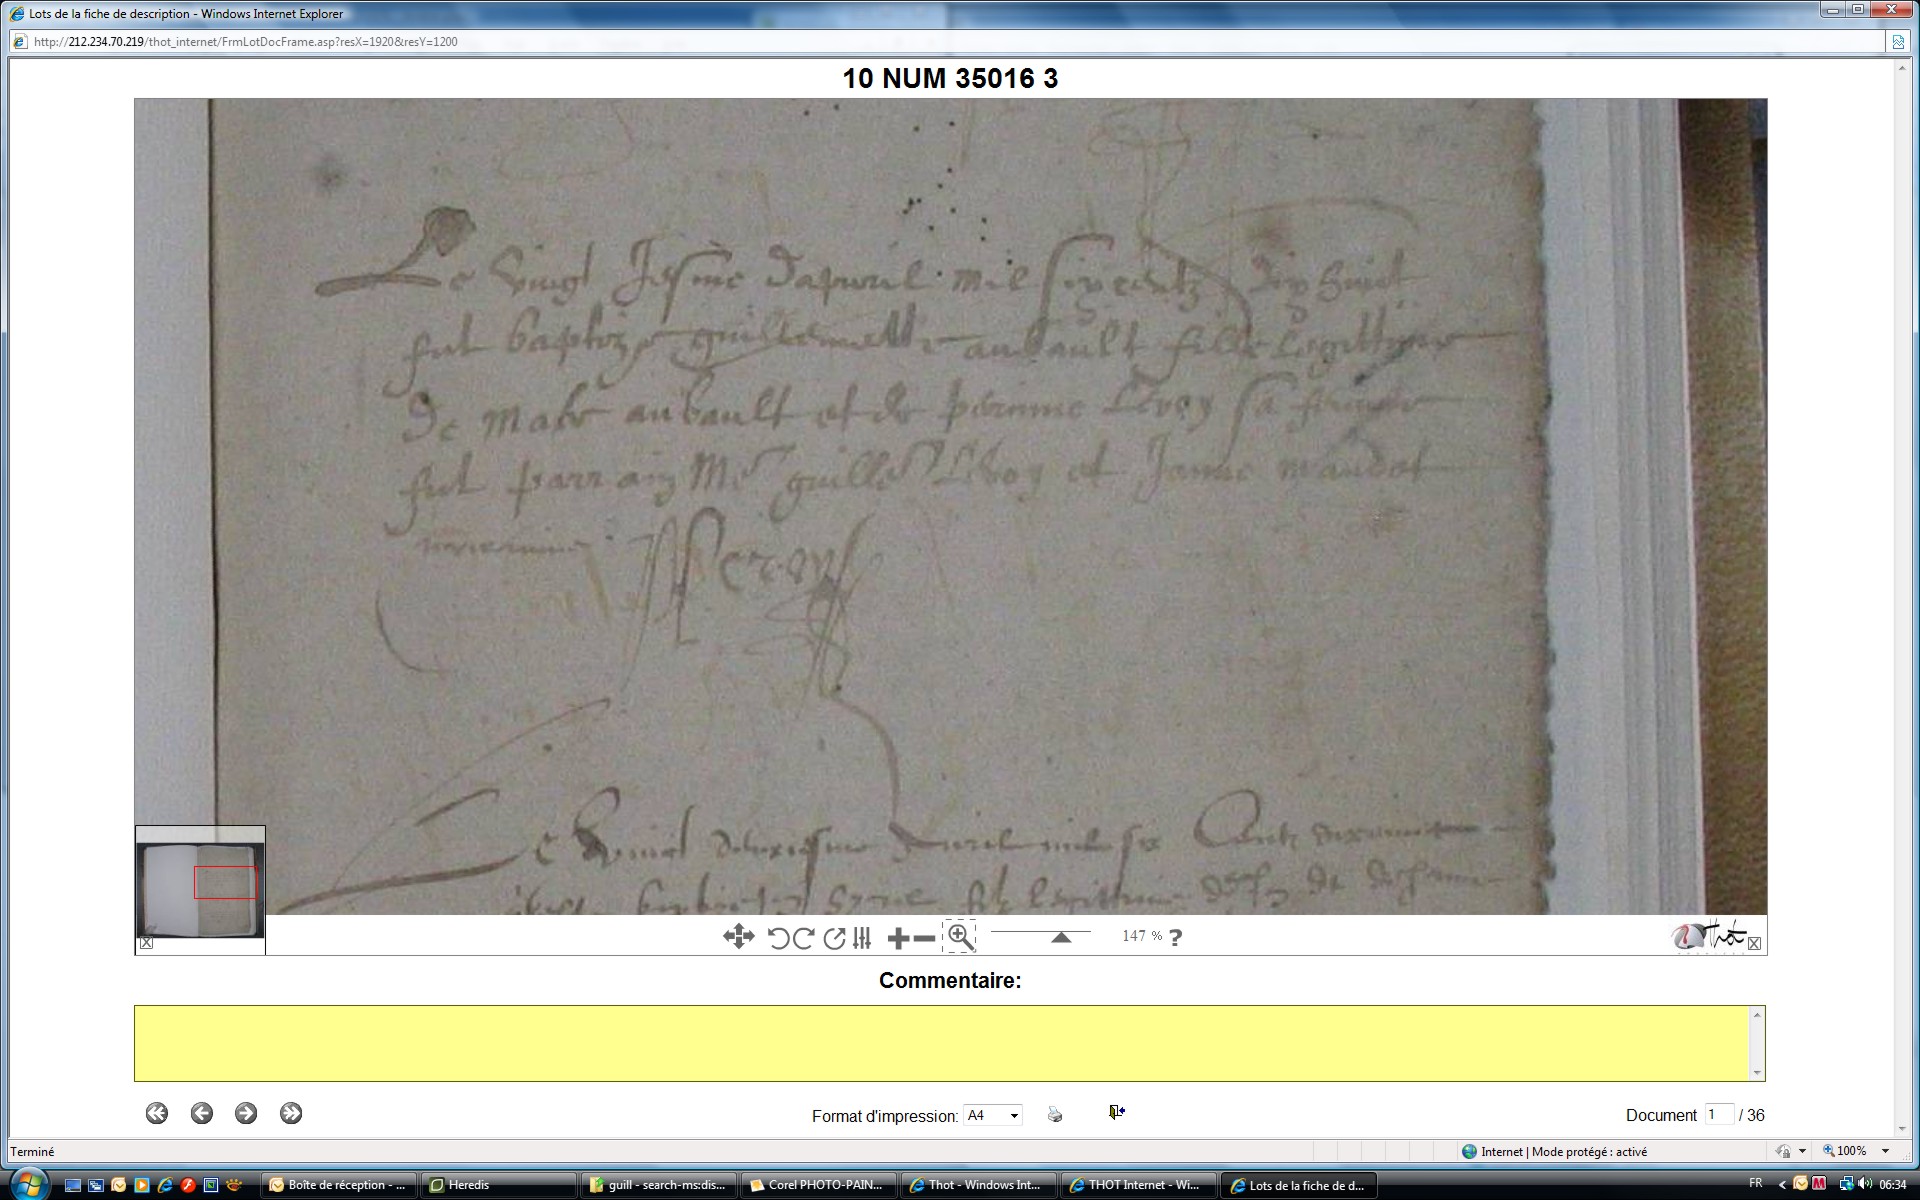 Lots de la fiche de description - Windows Internet Explorer
http://212.234.70.219/thot_internet/FrmLotDocFrame.asp?resX=1920&resY=1200
10 NUM 35016 3
Le vingt iesme dapvril mil six centz dix huict
fut baptizee guillemette aubault fille legittime
de mabe aubault et de perinne Levoy sa femme
fut parrain Me guille Levoy et Janne maudet
Le vingt deuxiesme Avril mil six Centz dix
filz legittime de
147 % ?
Thot
Commentaire:
Format d'impression: A4
Document 1 / 36
Terminé
Internet | Mode protégé : activé
100%
Boîte de réception - ...
Heredis
guill - search-ms:dis...
Corel PHOTO-PAIN...
Thot - Windows Int...
THOT Internet - Wi...
Lots de la fiche de d...
FR
06:34